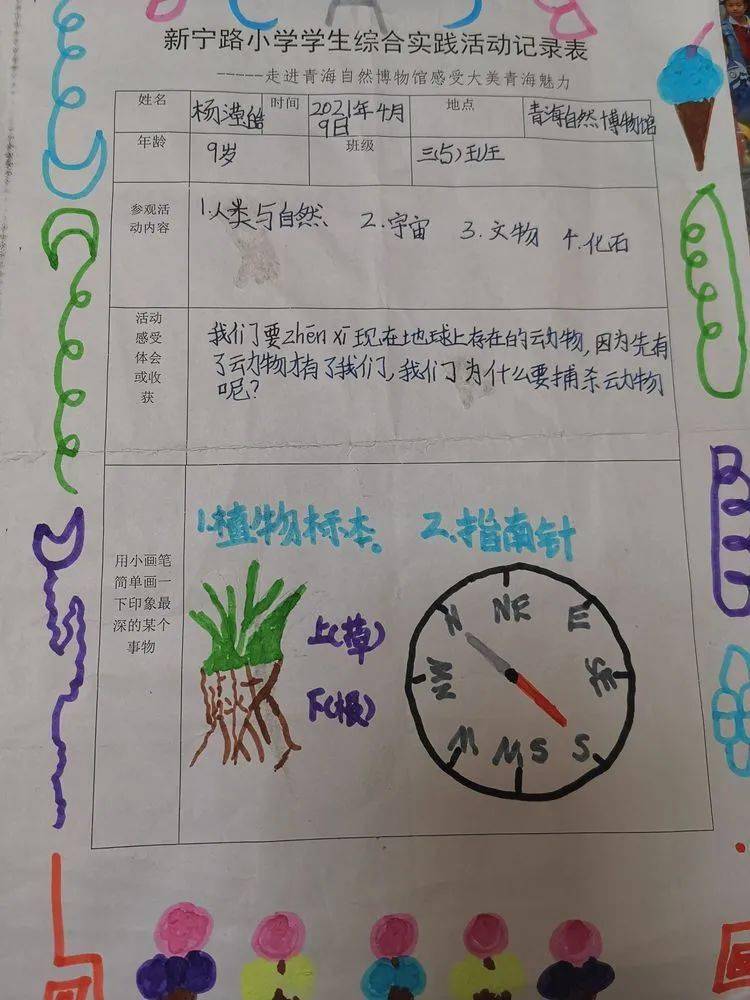 新宁路小学学生综合实践活动记录表
-----走进青海自然博物馆感受大美青海魅力
姓名 杨滢皓 时间 2021年4月9日 地点 青海自然博物馆
年龄 9岁 班级 三(5)班
参观活动内容
1.人类与自然 2.宇宙 3.文物 4.化石
活动
感受
体会
或收
获
我们要zhēn xī现在地球上存在的动物,因为先有
了动物才有了我们,我们为什么要捕杀动物
呢?
用小画笔
简单画一
下印象最
深的某个
事物
1.植物标本。 2.指南针
上(草)
下(根)
N NE E SE S WS W NW